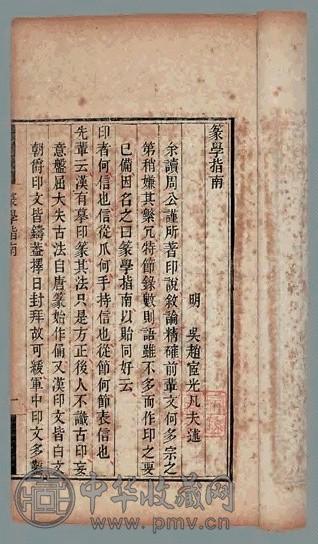 篆學指南
明 吳趙宧光凡夫述
余讀周公謹所著印說敘論精確前輩文何多宗之
第稍嫌其繁冗特節錄數則語雖不多而作印之要
已備因名之曰篆學指南以貽同好云
印者何信也信從爪何手持信也從卩何節表信也
先輩云漢有摹印篆其法只是方正後人不識古印妄
意盤屈大失古法自唐篆始作偏又漢印文皆白文
朝爵印文皆鑄蓋擇日封拜故可緩軍中印文多鑿
篆學指南
一
中华收藏网
www.pmv.cn